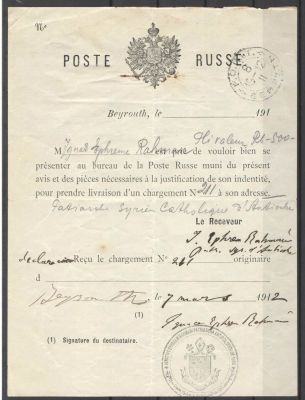 POSTE RUSSE
Beyrouth, le 191
M Ignace Ephrem Rahmani est prié de vouloir bien se
présenter au bureau de la Poste Russe muni du présent
avis et des pièces nécessaires à la justification de son indentité,
pour prendre livraison d'un chargement N° 261 à son adresse.
Patriarche Syrien Catholique d'Antioche
Le Receveur
I. Ephrem Rahmani
Reçu le chargement N° 261 originaire
d
Beyrouth le 7 mars 1912
(1) Ignace Ephrem Rahmani
(1) Signature du destinataire.